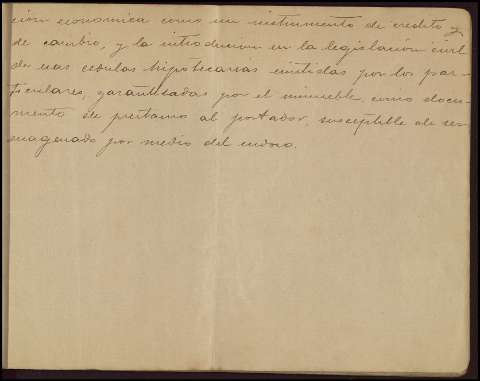 ción economica como un instrumento de credito y
de cambio, y la introduccion en la legislación civil
de las cedulas hipotecarias emitidas por los par-
ticulares, garantizadas por el inmueble, como docu-
mento de prestamo al portador, susceptible de ser
enagenado por medio del endoso.